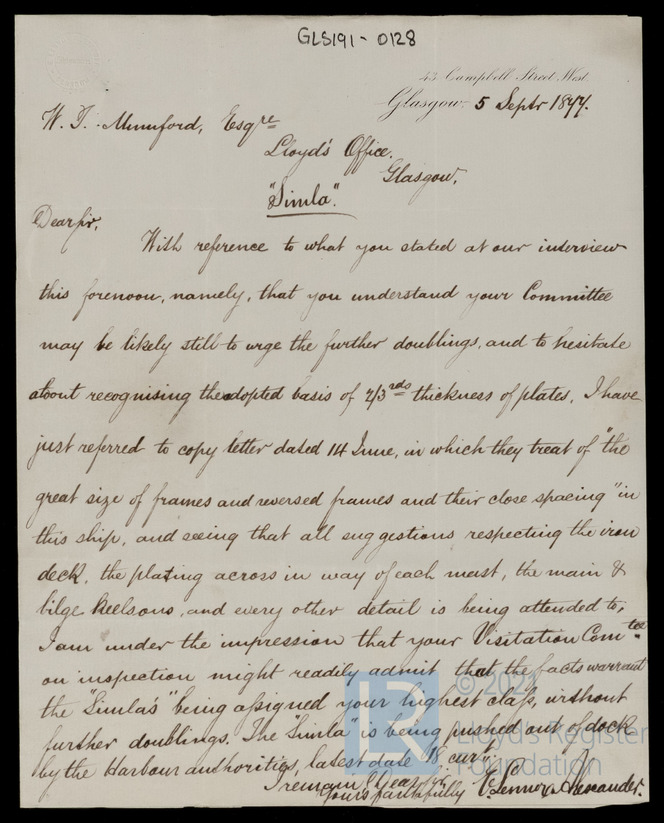 GLS191 - 0128
43 Campbell Street West
Glasgow 5 Septr 1877.
W. T. Mumford, Esqre
Lloyd's Office.
Glasgow.
"Simla".
Dear Sir,
With reference to what you stated at our interview
this forenoon, namely, that you understand your Committee
may be likely still to urge the further doublings, and to hesitate
about recognising the adopted basis of 2/3rds thickness of plates, I have
just referred to copy letter dated 14 June, in which they treat of "the
great size of frames and reversed frames and their close spacing" in
this ship, and seeing that all suggestions respecting the iron
deck, the plating across in way of each mast, the main &
bilge keelsons, and every other detail is being attended to,
I am under the impression that your Visitation Comtee
on inspection might readily admit that the facts warrant
the "Simla's" being assigned your highest class, without
further doublings. The "Simla" is being pushed out of dock
by the Harbour authorities, latest date 18 curt.
I remain Dear Sir
Yours faithfully
© 2021
Lloyd's Register
Foundation
LR